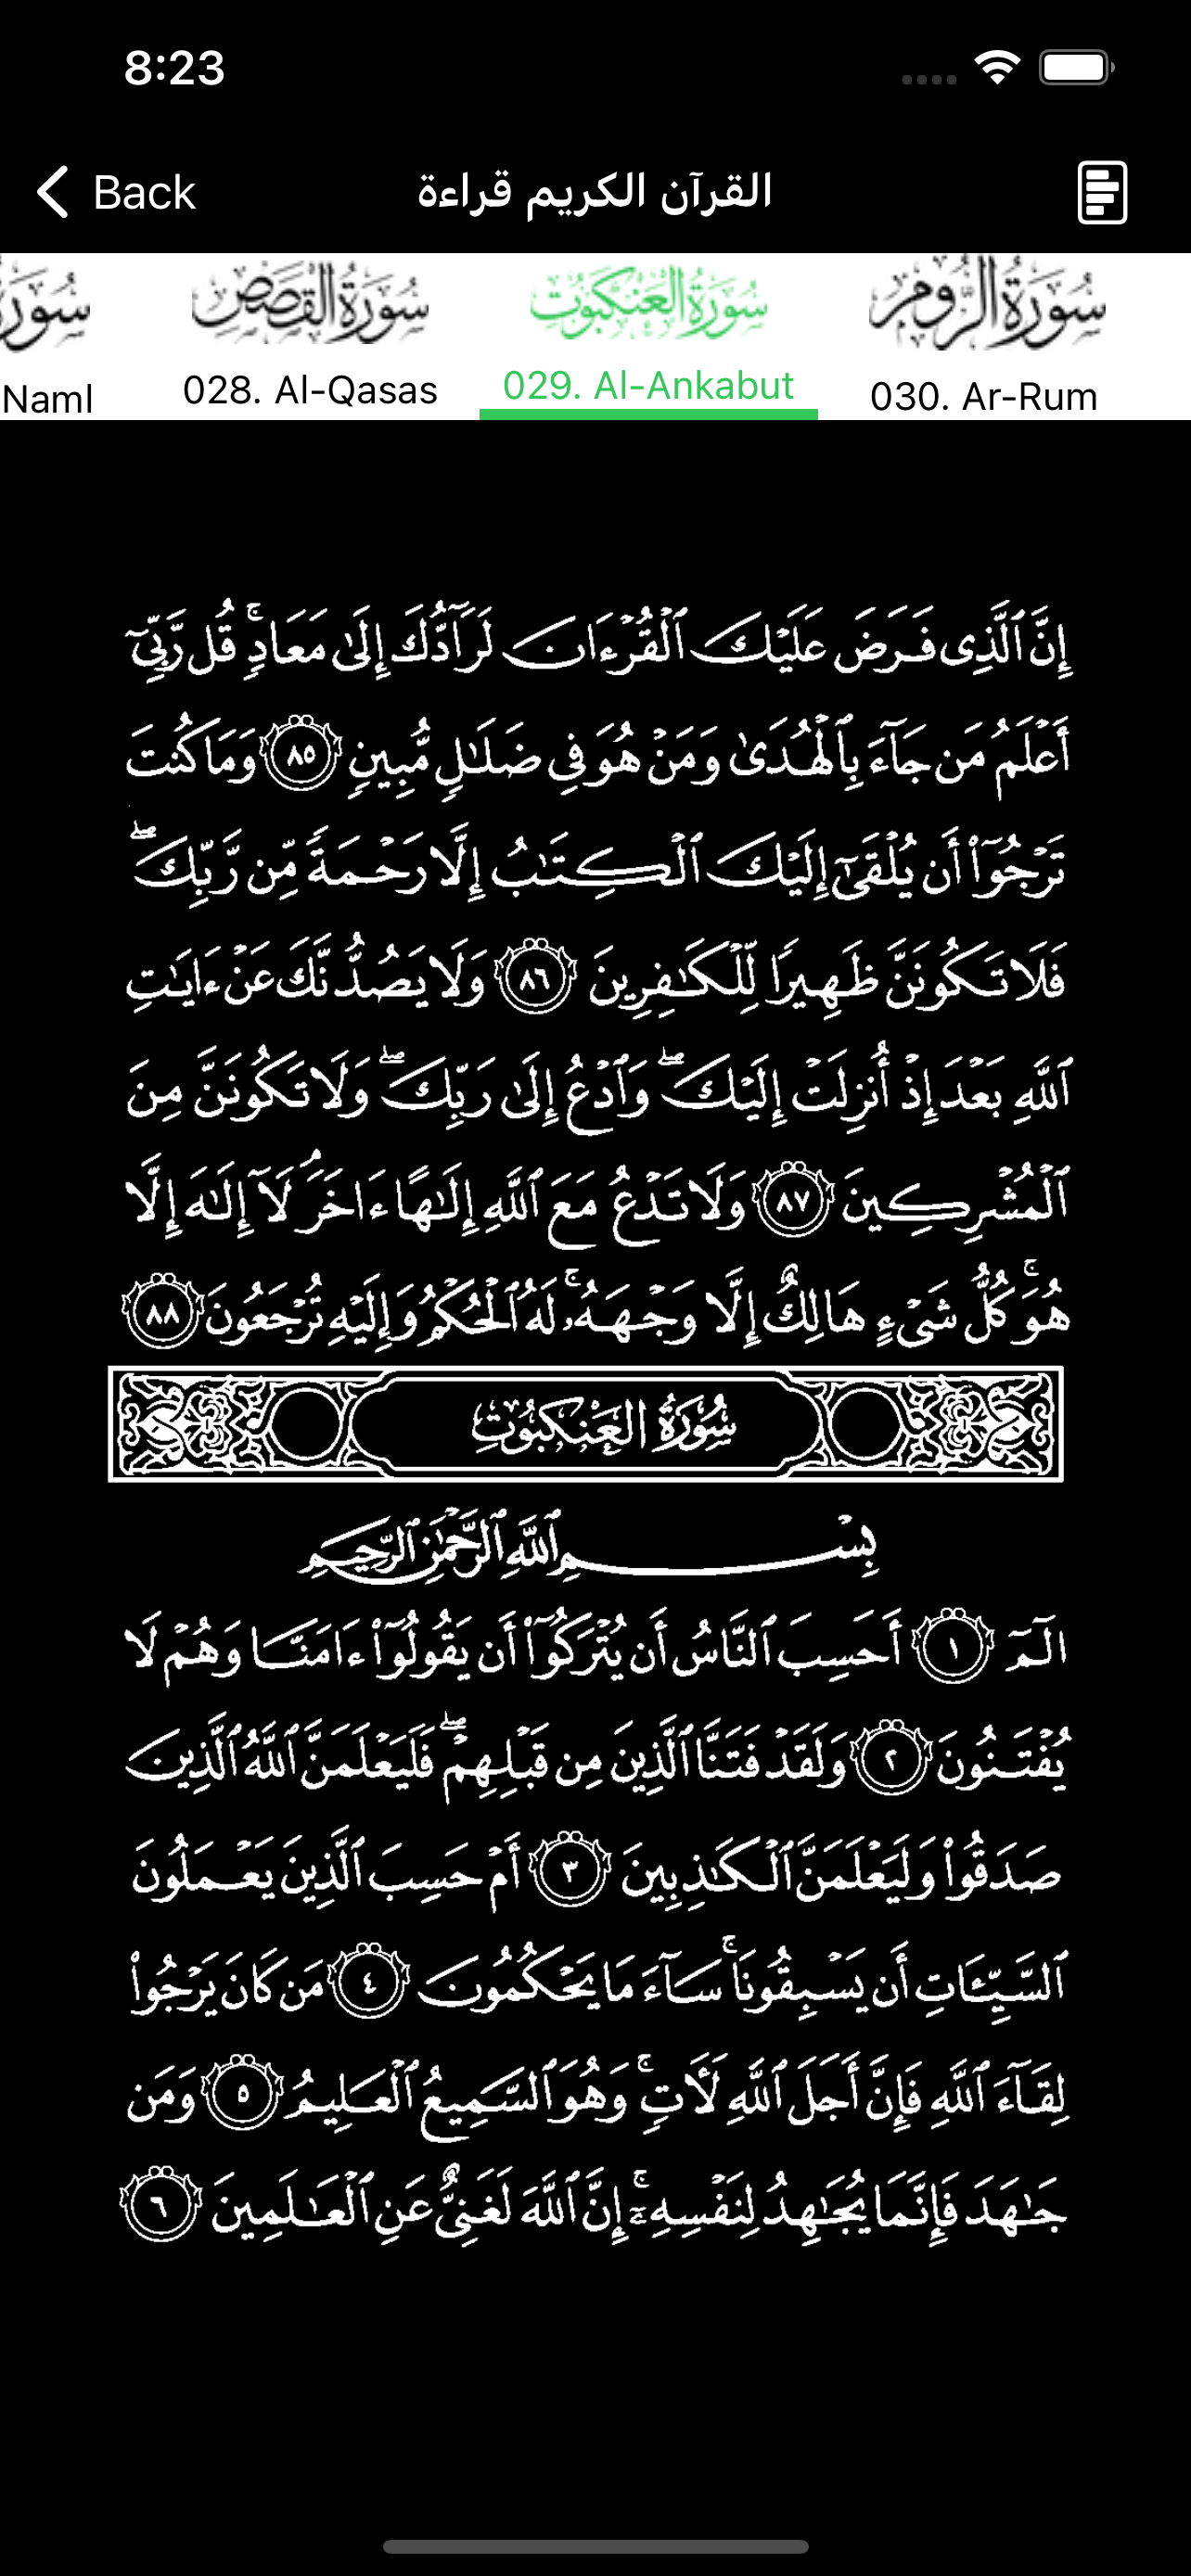 8:23
Back
القرآن الكريم قراءة
سورة القصص
سورة العنكبوت
سورة الروم
Naml
028. Al-Qasas
029. Al-Ankabut
030. Ar-Rum
إِنَّ ٱلَّذِى فَرَضَ عَلَيْكَ ٱلْقُرْءَانَ لَرَآدُّكَ إِلَىٰ مَعَادٍ ۚ قُل رَّبِّىٓ
أَعْلَمُ مَن جَآءَ بِٱلْهُدَىٰ وَمَنْ هُوَ فِى ضَلَـٰلٍ مُّبِينٍ ٨٥ وَمَا كُنتَ
تَرْجُوٓا۟ أَن يُلْقَىٰٓ إِلَيْكَ ٱلْكِتَـٰبُ إِلَّا رَحْمَةً مِّن رَّبِّكَ ۖ
فَلَا تَكُونَنَّ ظَهِيرًا لِّلْكَـٰفِرِينَ ٨٦ وَلَا يَصُدُّنَّكَ عَنْ ءَايَـٰتِ
ٱللَّهِ بَعْدَ إِذْ أُنزِلَتْ إِلَيْكَ ۖ وَٱدْعُ إِلَىٰ رَبِّكَ ۖ وَلَا تَكُونَنَّ مِنَ
ٱلْمُشْرِكِينَ ٨٧ وَلَا تَدْعُ مَعَ ٱللَّهِ إِلَـٰهًا ءَاخَرَ ۘ لَآ إِلَـٰهَ إِلَّا
هُوَ ۚ كُلُّ شَىْءٍ هَالِكٌ إِلَّا وَجْهَهُۥ ۚ لَهُ ٱلْحُكْمُ وَإِلَيْهِ تُرْجَعُونَ ٨٨
سُورَةُ العَنكبُوتِ
بِسْمِ ٱللَّهِ ٱلرَّحْمَـٰنِ ٱلرَّحِيمِ
الٓمٓ ١ أَحَسِبَ ٱلنَّاسُ أَن يُتْرَكُوٓا۟ أَن يَقُولُوٓا۟ ءَامَنَّا وَهُمْ لَا
يُفْتَنُونَ ٢ وَلَقَدْ فَتَنَّا ٱلَّذِينَ مِن قَبْلِهِمْ ۖ فَلَيَعْلَمَنَّ ٱللَّهُ ٱلَّذِينَ
صَدَقُوا۟ وَلَيَعْلَمَنَّ ٱلْكَـٰذِبِينَ ٣ أَمْ حَسِبَ ٱلَّذِينَ يَعْمَلُونَ
ٱلسَّيِّـَٔاتِ أَن يَسْبِقُونَا ۚ سَآءَ مَا يَحْكُمُونَ ٤ مَن كَانَ يَرْجُوا۟
لِقَآءَ ٱللَّهِ فَإِنَّ أَجَلَ ٱللَّهِ لَـَٔاتٍ ۚ وَهُوَ ٱلسَّمِيعُ ٱلْعَلِيمُ ٥ وَمَن
جَـٰهَدَ فَإِنَّمَا يُجَـٰهِدُ لِنَفْسِهِۦٓ ۚ إِنَّ ٱللَّهَ لَغَنِىٌّ عَنِ ٱلْعَـٰلَمِينَ ٦